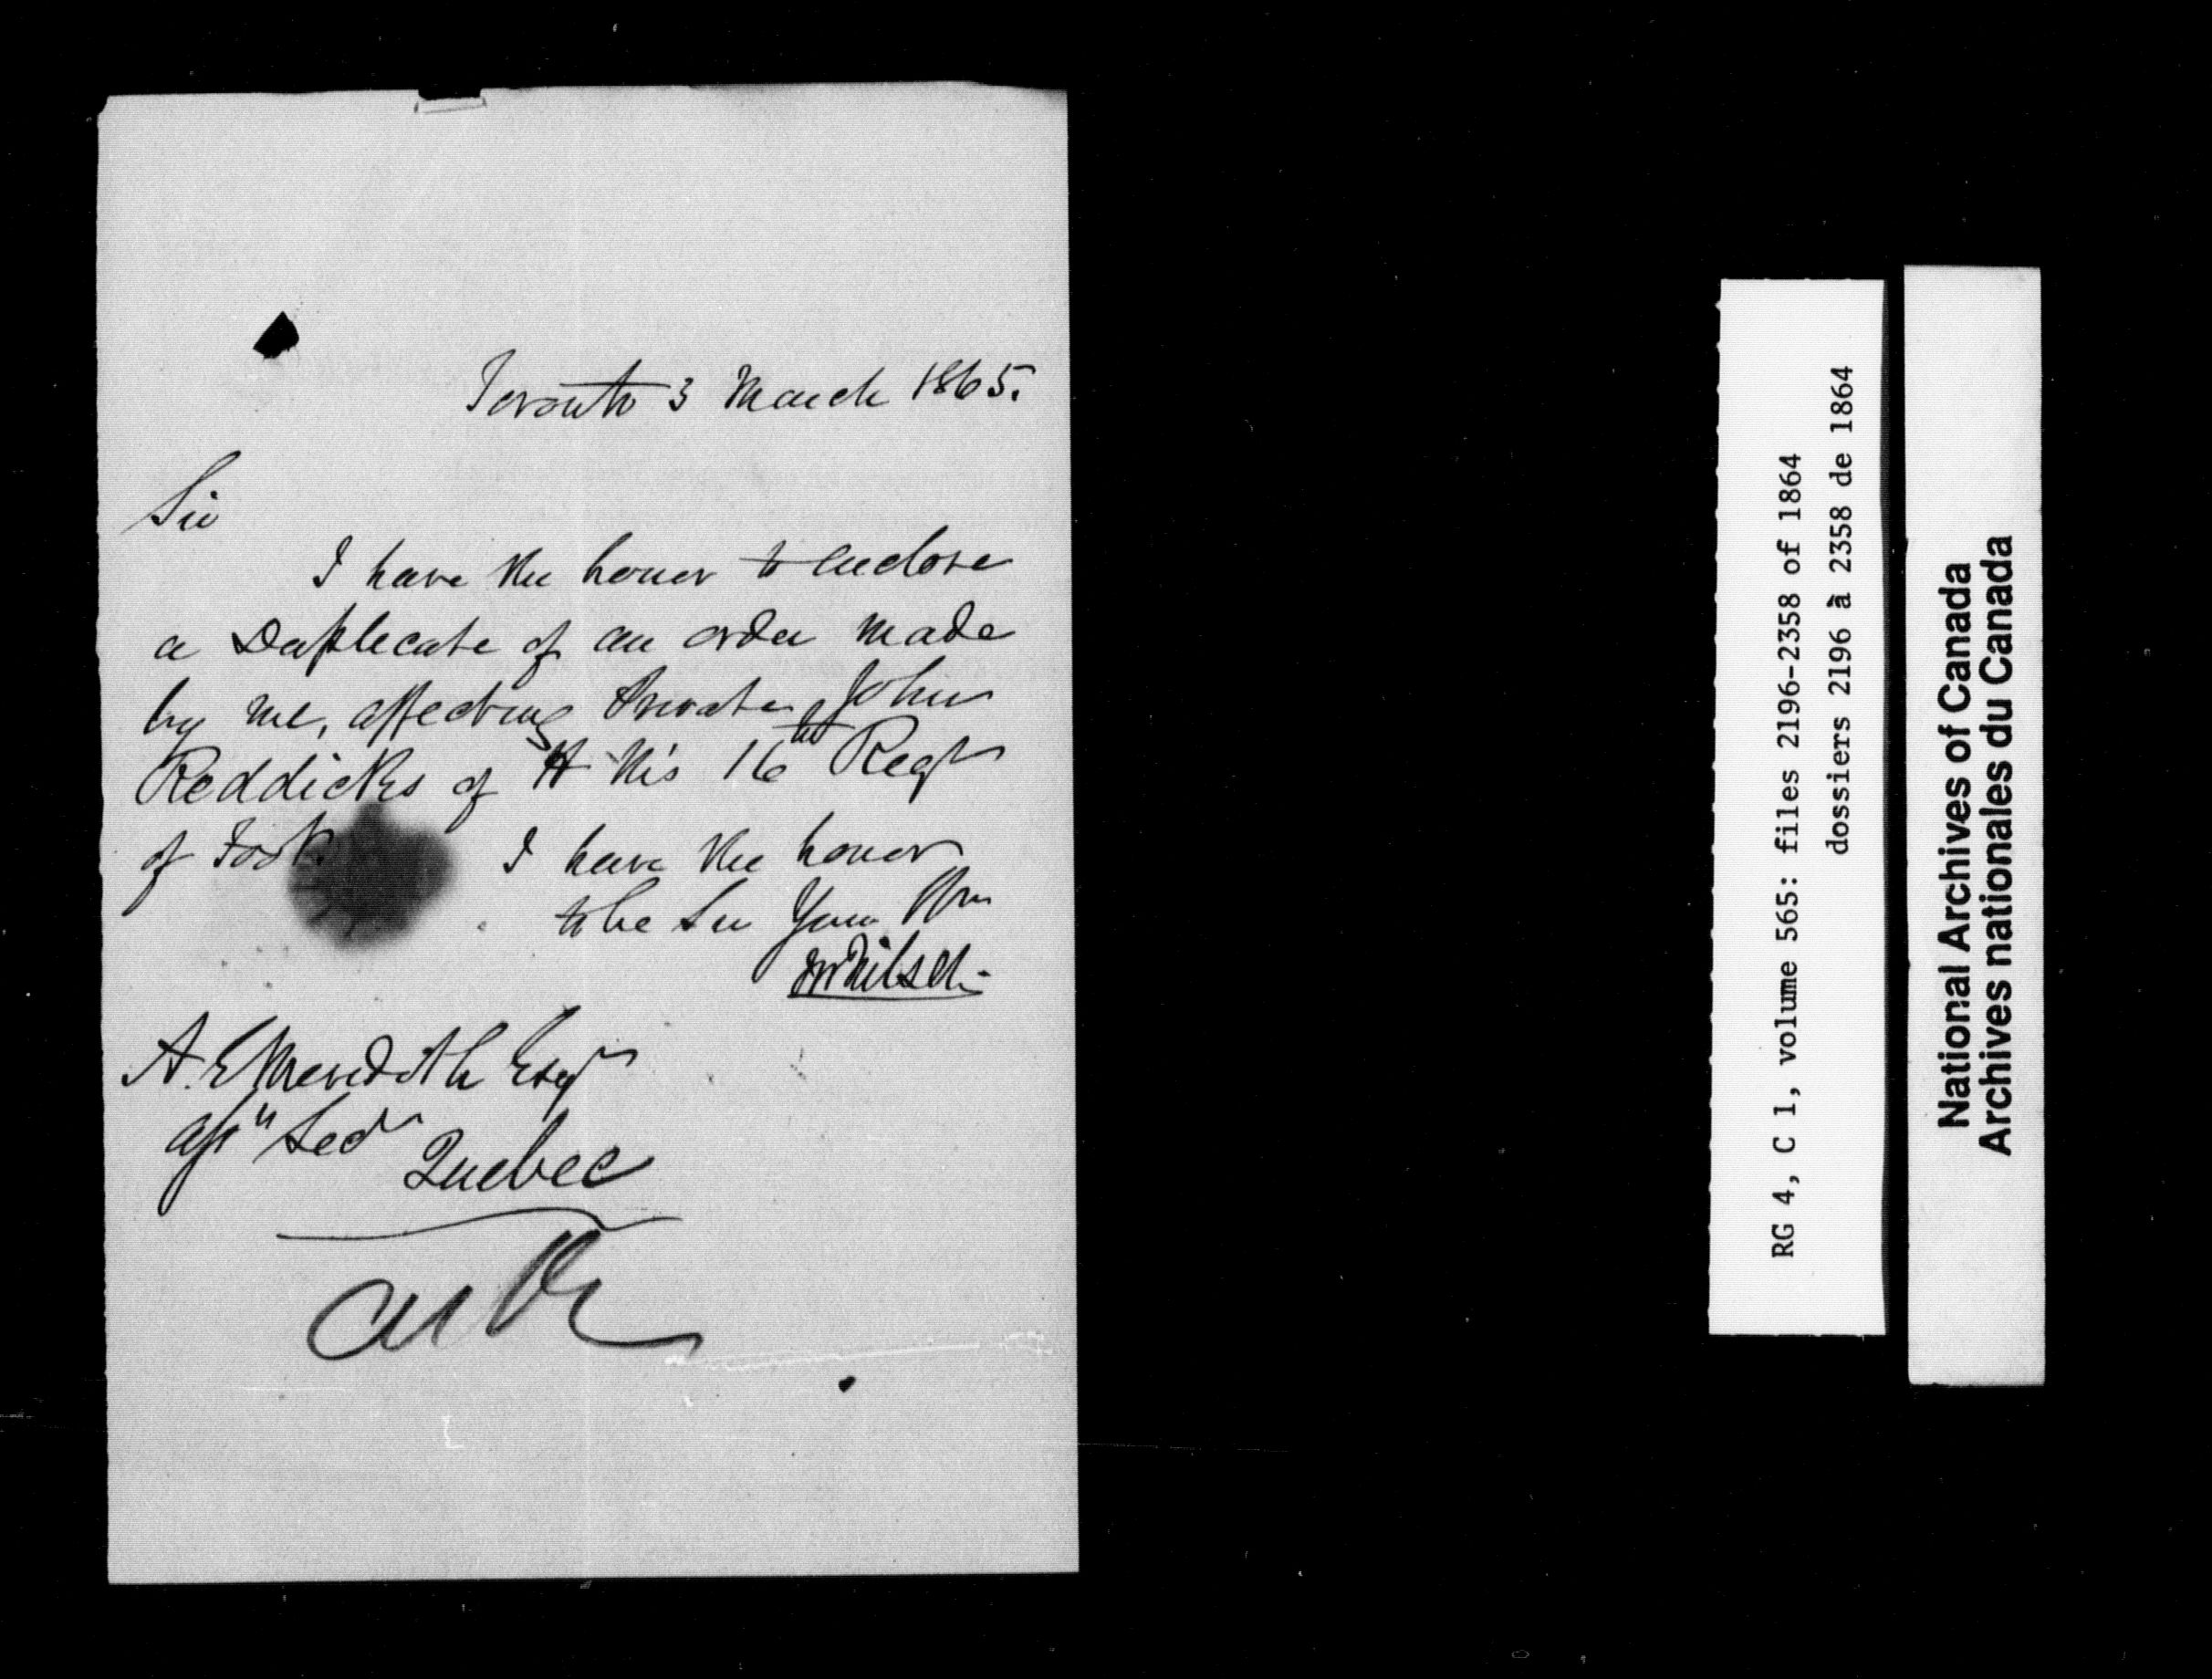 Toronto 3 March 1865.
Sir
I have the honor to enclose
a Duplicate of an order made
by me, affecting Private John
Reddicks of H M's 16th Regt
of Foot.
I have the honor
to be Sir Your
A. E Meredith Esqr
Asst Secr
Quebec
RG 4, C 1, volume 565: files 2196-2358 of 1864
dossiers 2196 à 2358 de 1864
National Archives of Canada
Archives nationales du Canada